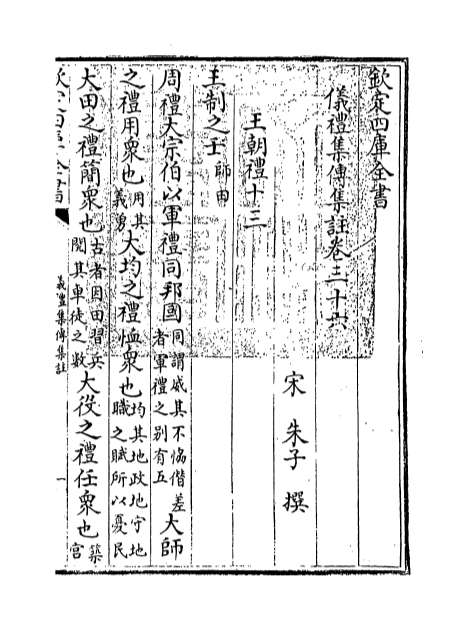 欽定四庫全書
儀禮集傳集註卷三十六
宋 朱子 撰
王朝禮十三
王制之壬 師田
周禮大宗伯以軍禮同邦國 同謂威其不恊僭差者軍禮之别有五 大師
之禮用衆也 用其義勇 大均之禮恤衆也 均其地政地守地職之賦所以憂民
大田之禮簡衆也 古者因田習兵閱其車徒之數 大役之禮任衆也 築宫
欽定四庫全書
儀禮集傳集註
一